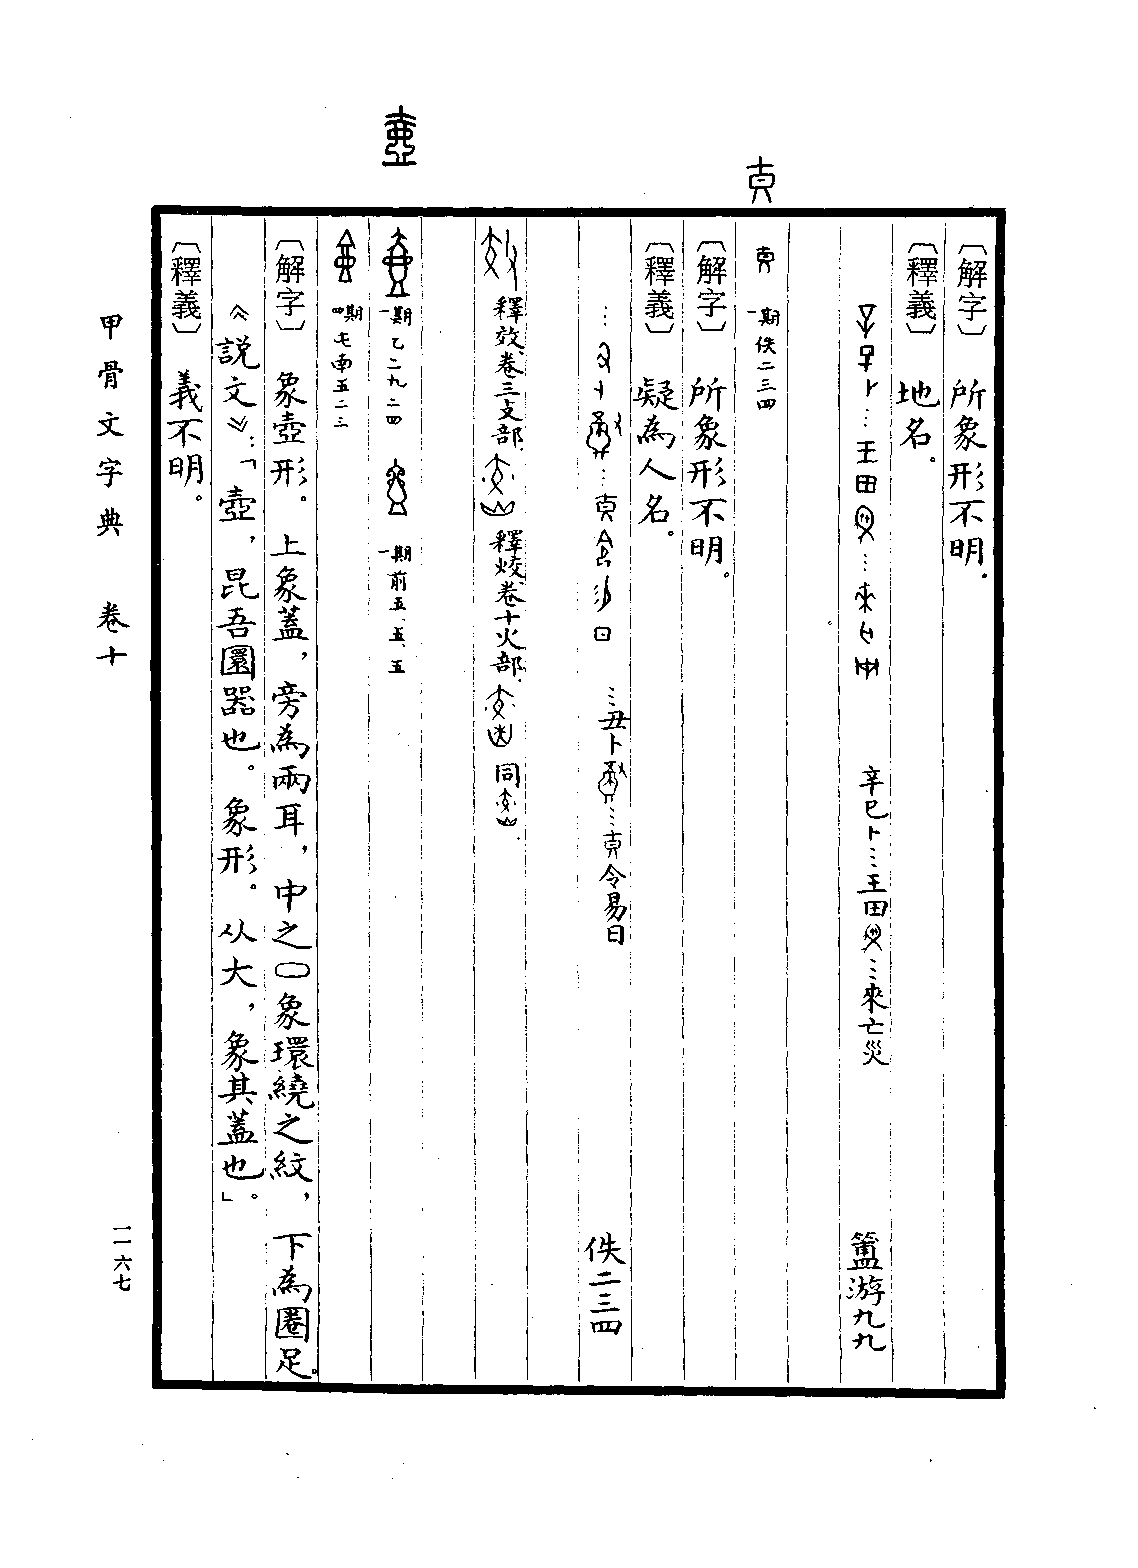 壺
〔解字〕 所象形不明。
〔釋義〕 地名。
辛巳卜…王田…來亡災 簠游九九
一期 佚二三四
〔解字〕 所象形不明。
〔釋義〕 疑為人名。
…丑卜…令易日 佚二三四
釋效，卷三攴部。釋烄，卷十火部。同
一期 乙二九二四 一期 前五、五、五
四期 屯南五二三
〔解字〕 象壺形。上象蓋，旁為兩耳，中之○象環繞之紋，下為圈足。
《說文》：「壺，昆吾圜器也。象形。从大，象其蓋也」。
〔釋義〕 義不明。
甲骨文字典 卷十
一一六七